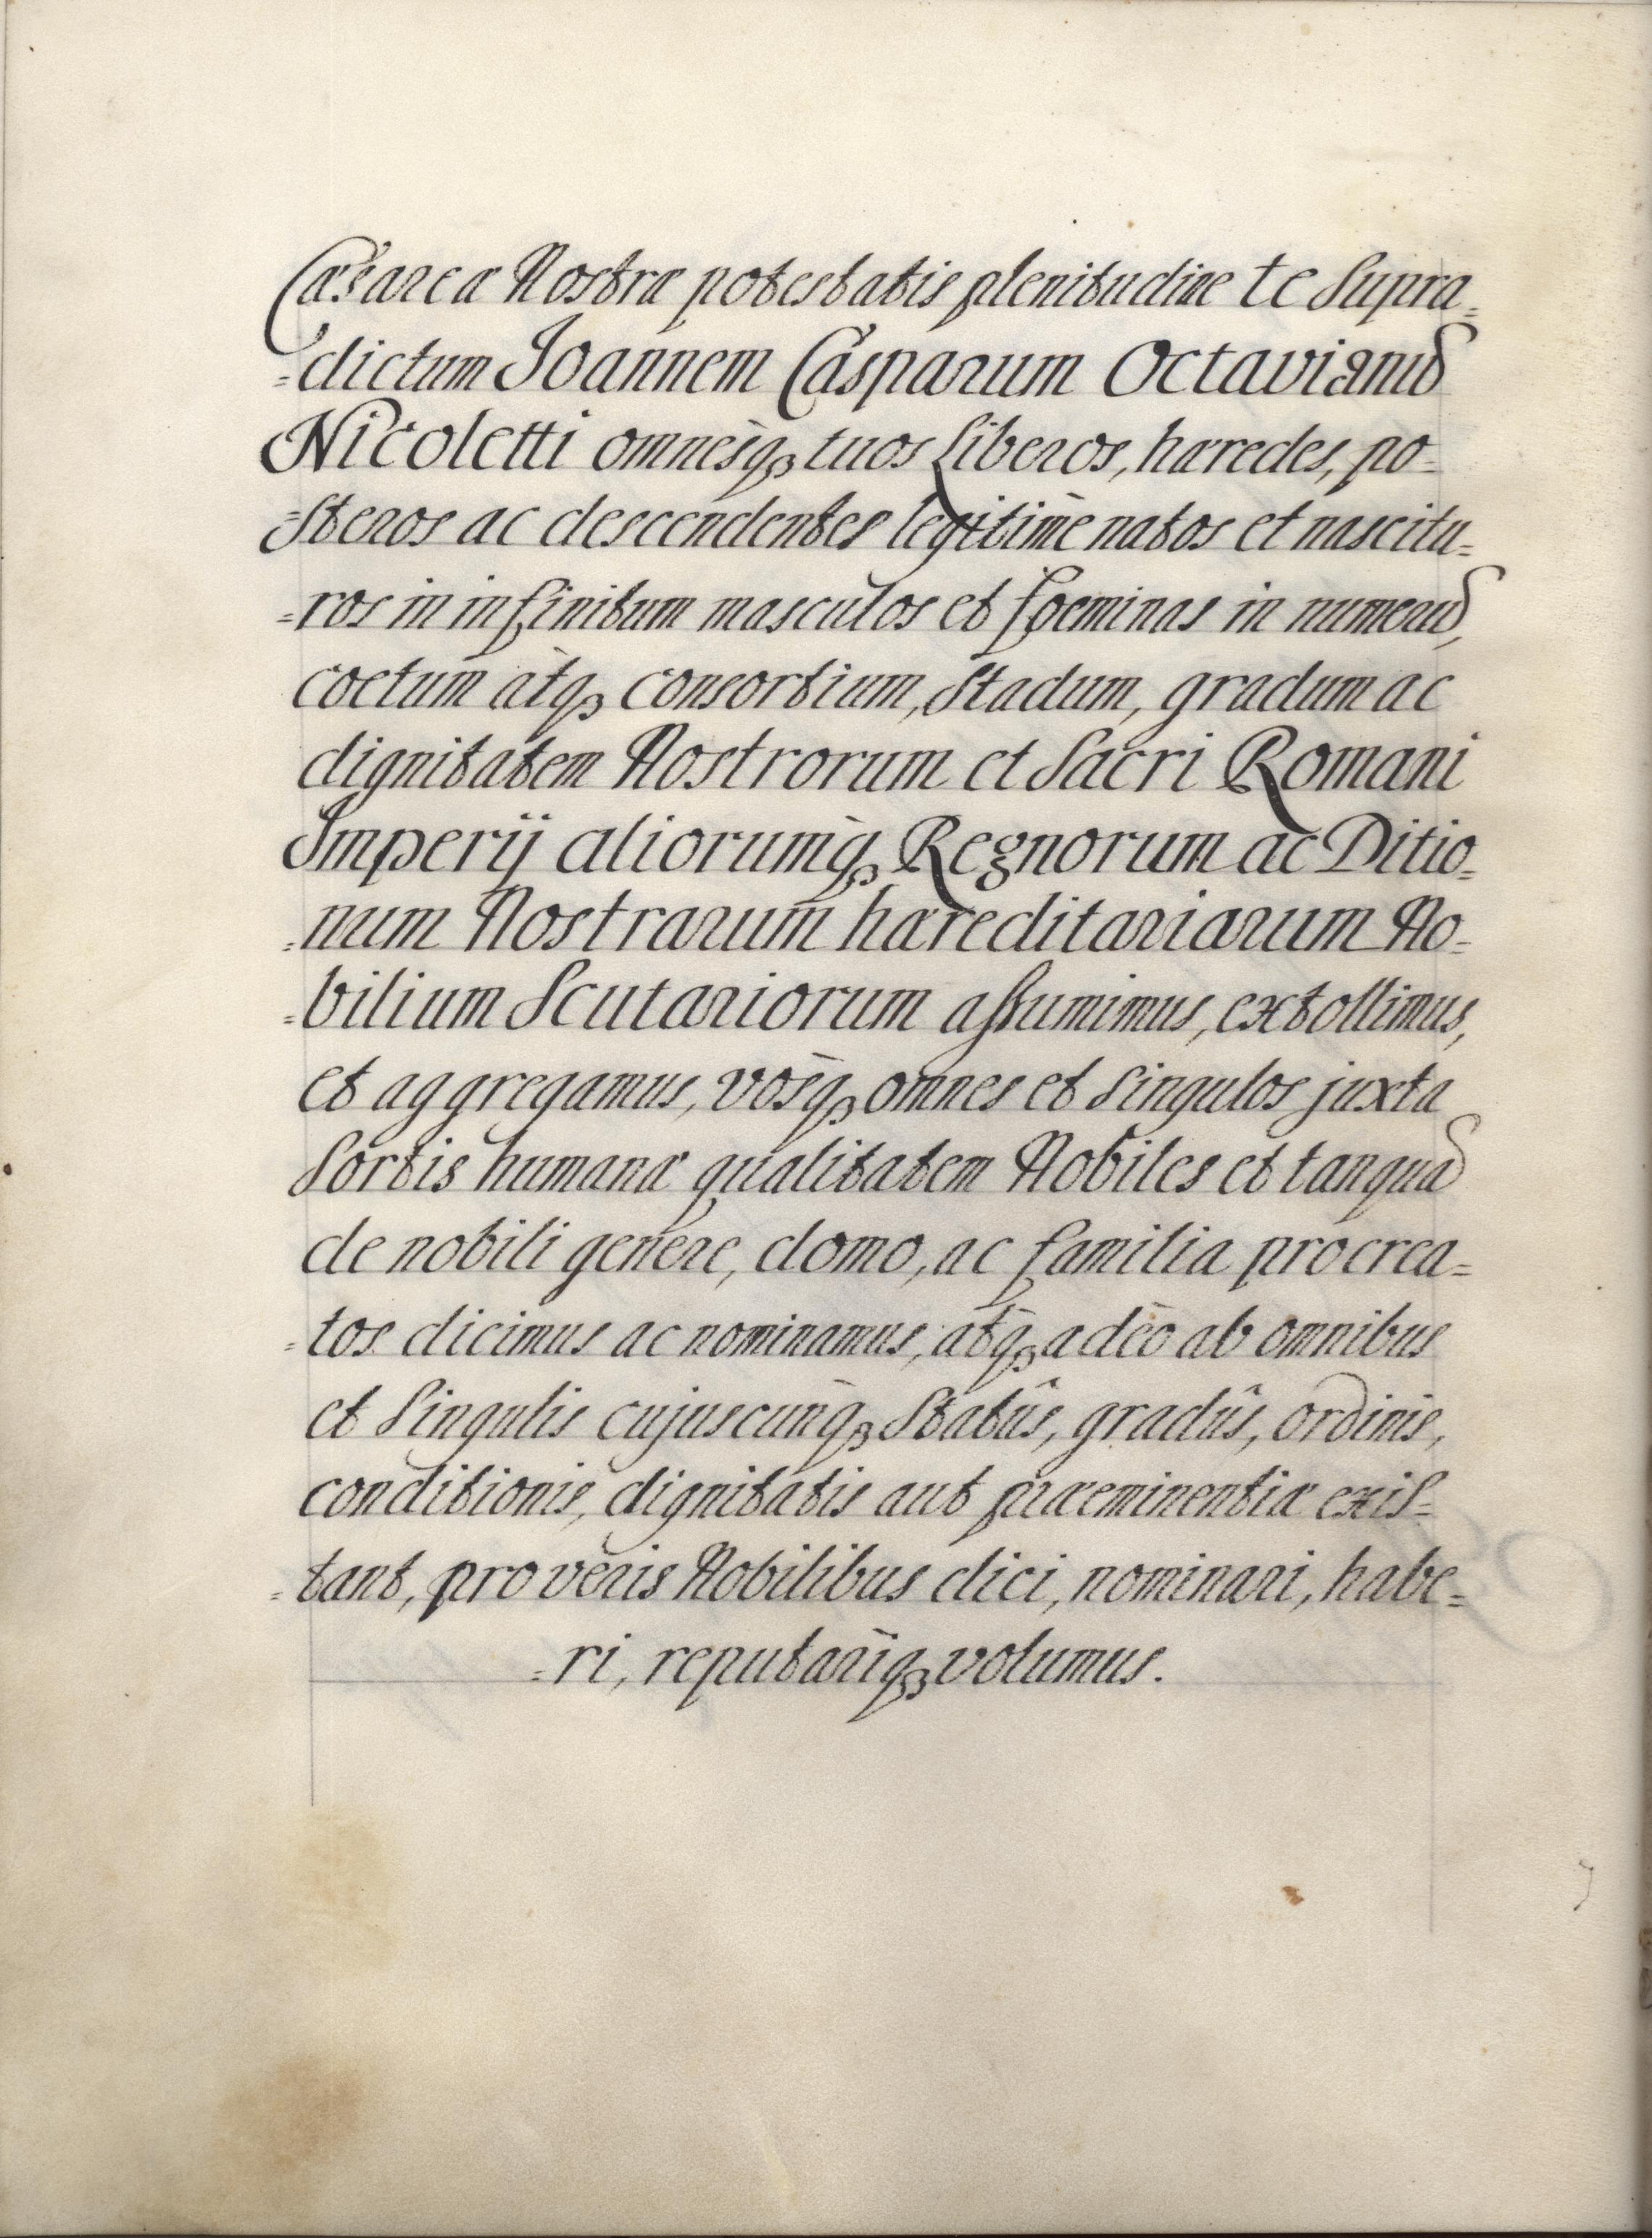 Cæsareæ Nostræ potestatis plenitudine te supra=
=dictum Joannem Casparum Octavianũ
Nicoletti omnesq̀ꝫ tuos Liberos, hæredes, po=
=steros ac descendentes legitimè natos et nascitu=
=ros in infinitum masculos et foeminas in numerũ,
coetum atq̀ꝫ consortium, stadum, gradum ac
dignitatem Nostrorum et Sacri Romani
Imperij aliorumq̀ꝫ Regnorum ac Ditio=
=num Nostrarum hæreditariarum No=
=bilium Scutariorum assumimus, extollimus,
et aggregamus, vosq̀ꝫ omnes et singulos juxta
sortis humanæ qualitatem Nobiles et tanquã
de nobili genere, domo, ac familia procrea=
=tos dicimus ac nominamus, atq̀ꝫ adeò ab omnibus
et singulis cujuscunq̀ꝫ statûs, gradûs, ordinis,
conditionis, dignitatis aut præeminentiæ exis=
=tant, pro veris Nobilibus dici, nominari, habe=
=ri, reputariq̀ꝫ volumus.